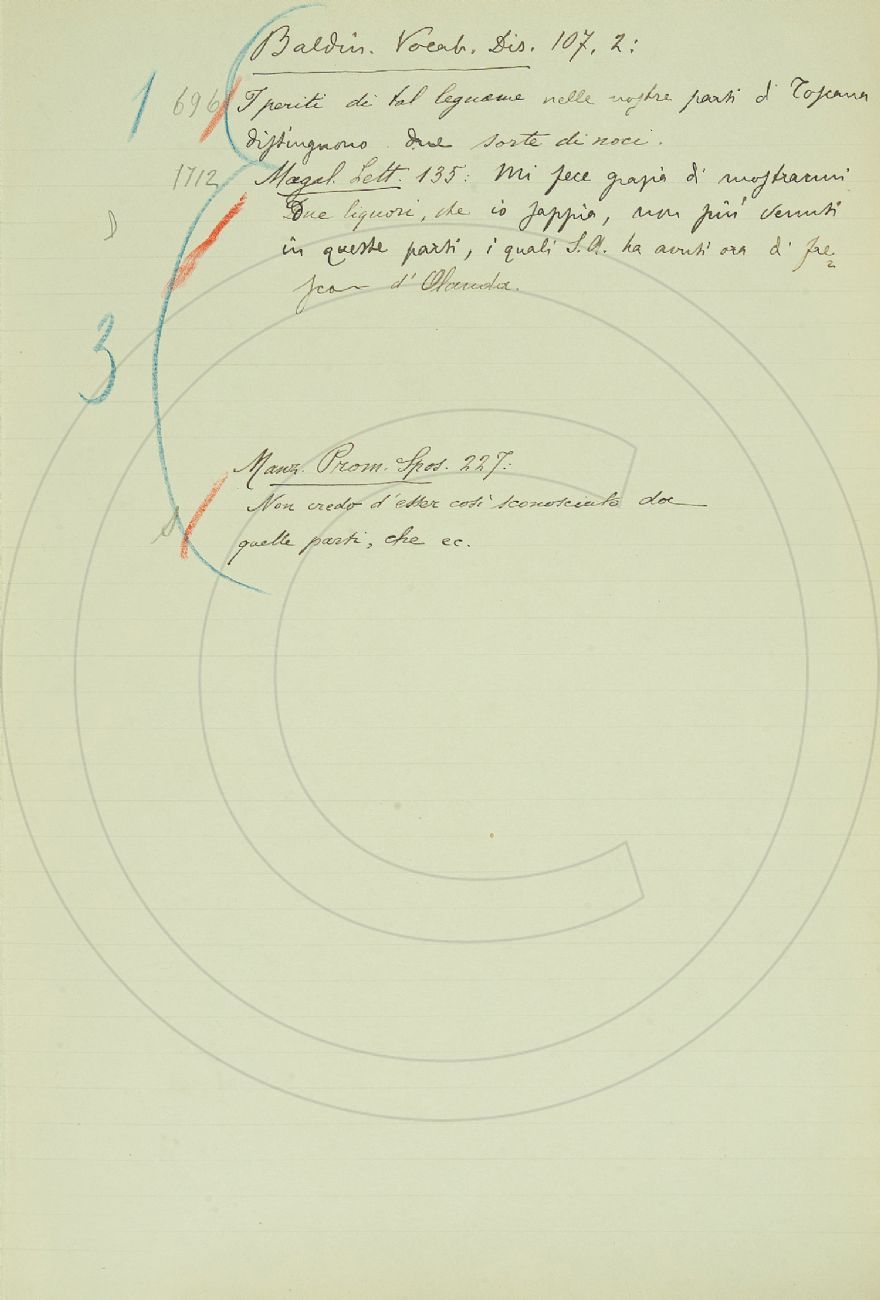 Baldin. Vocab. Dis. 107. 2:
1
696 I periti di tal legname nelle nostre parti di Toscana
distinguono due sorte di noci.
1712 Magal. Lett. 135: Mi fece grazia di mostrarmi
due liquori, che io sappia, non più venuti
in queste parti, i quali S. A. ha avuti ora di fre=
sco d'Olanda.
3
Manz. Prom. Spos. 227:
Non credo d'esser così sconosciuto da
quelle parti, che ec.